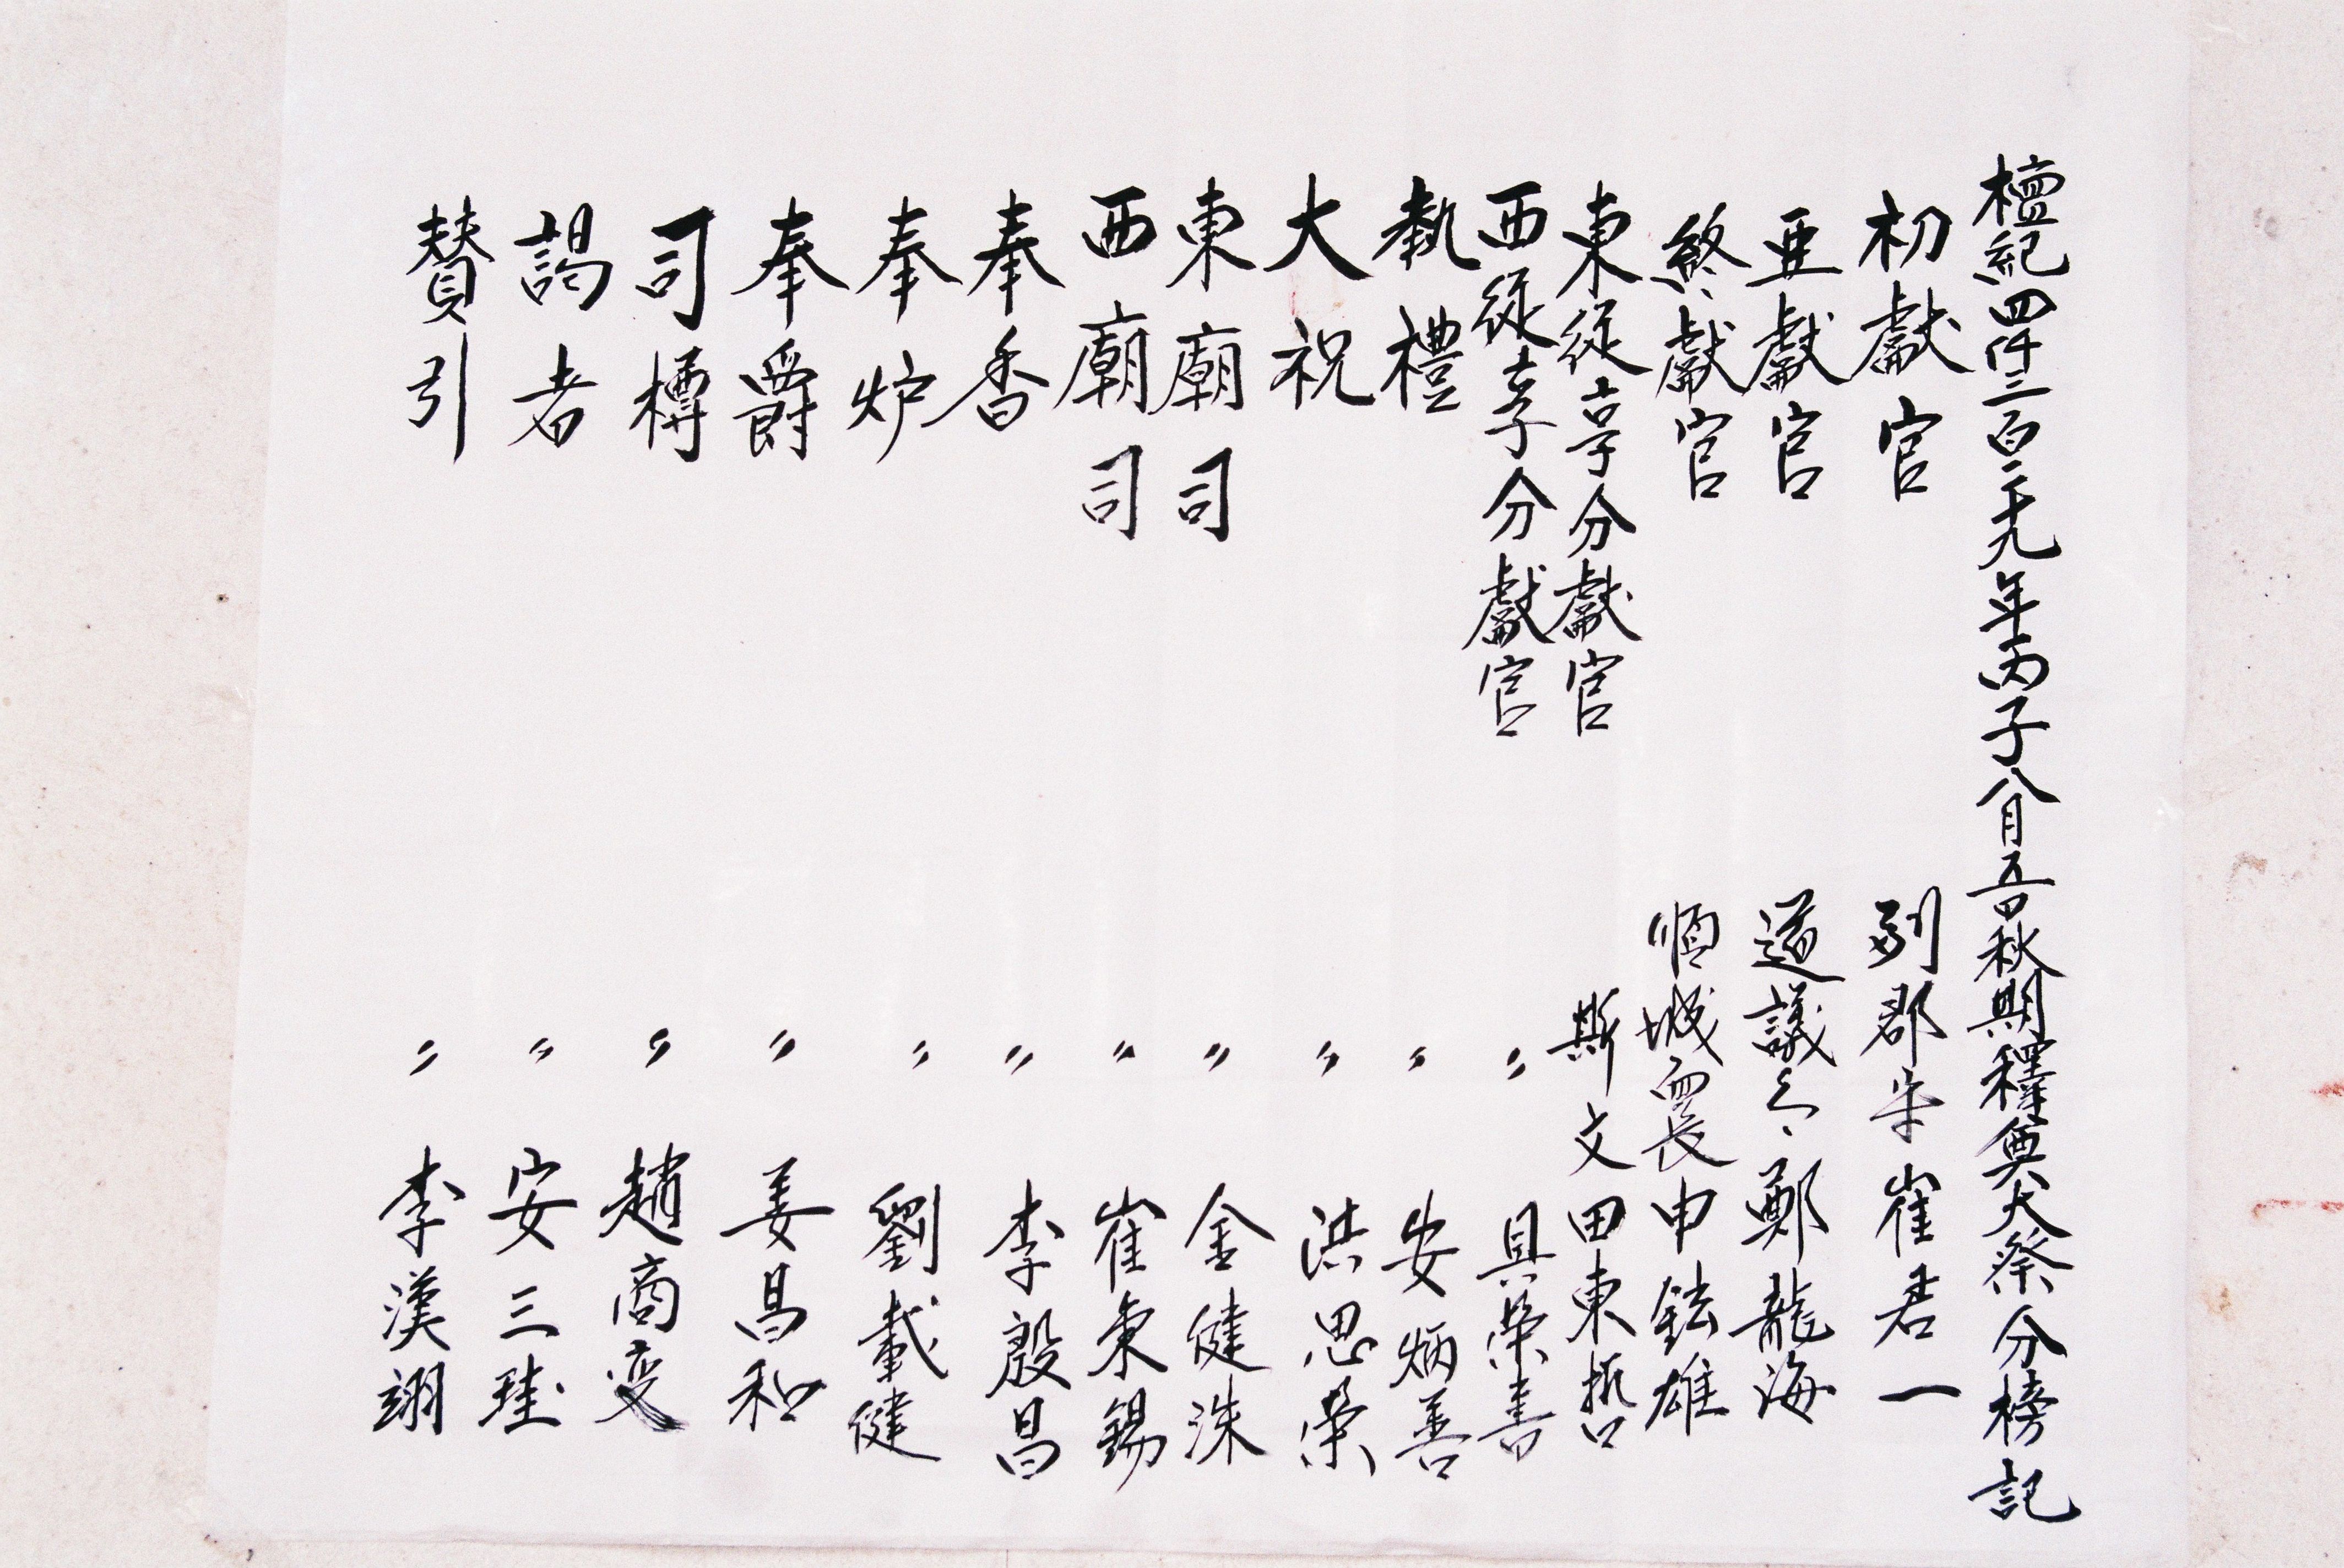 檀紀四仟三百二十九年丙子八月五日秋期釋奠大祭分榜記
初獻官 副郡守 崔君一
亞獻官 道議令 鄭龍海
終獻官 順城面長 申鉉雄
東從享分獻官 斯文 田東哲
西從享分獻官 〃 具榮書
執禮 〃 安炳善
大祝 〃 洪思榮
東廟司 〃 金健洙
西廟司 〃 崔東錫
奉香 〃 李殷昌
奉炉 〃 劉載健
奉爵 〃 姜昌和
司樽 〃 趙商변
謁者 〃 安三珪
賛引 〃 李漢翊